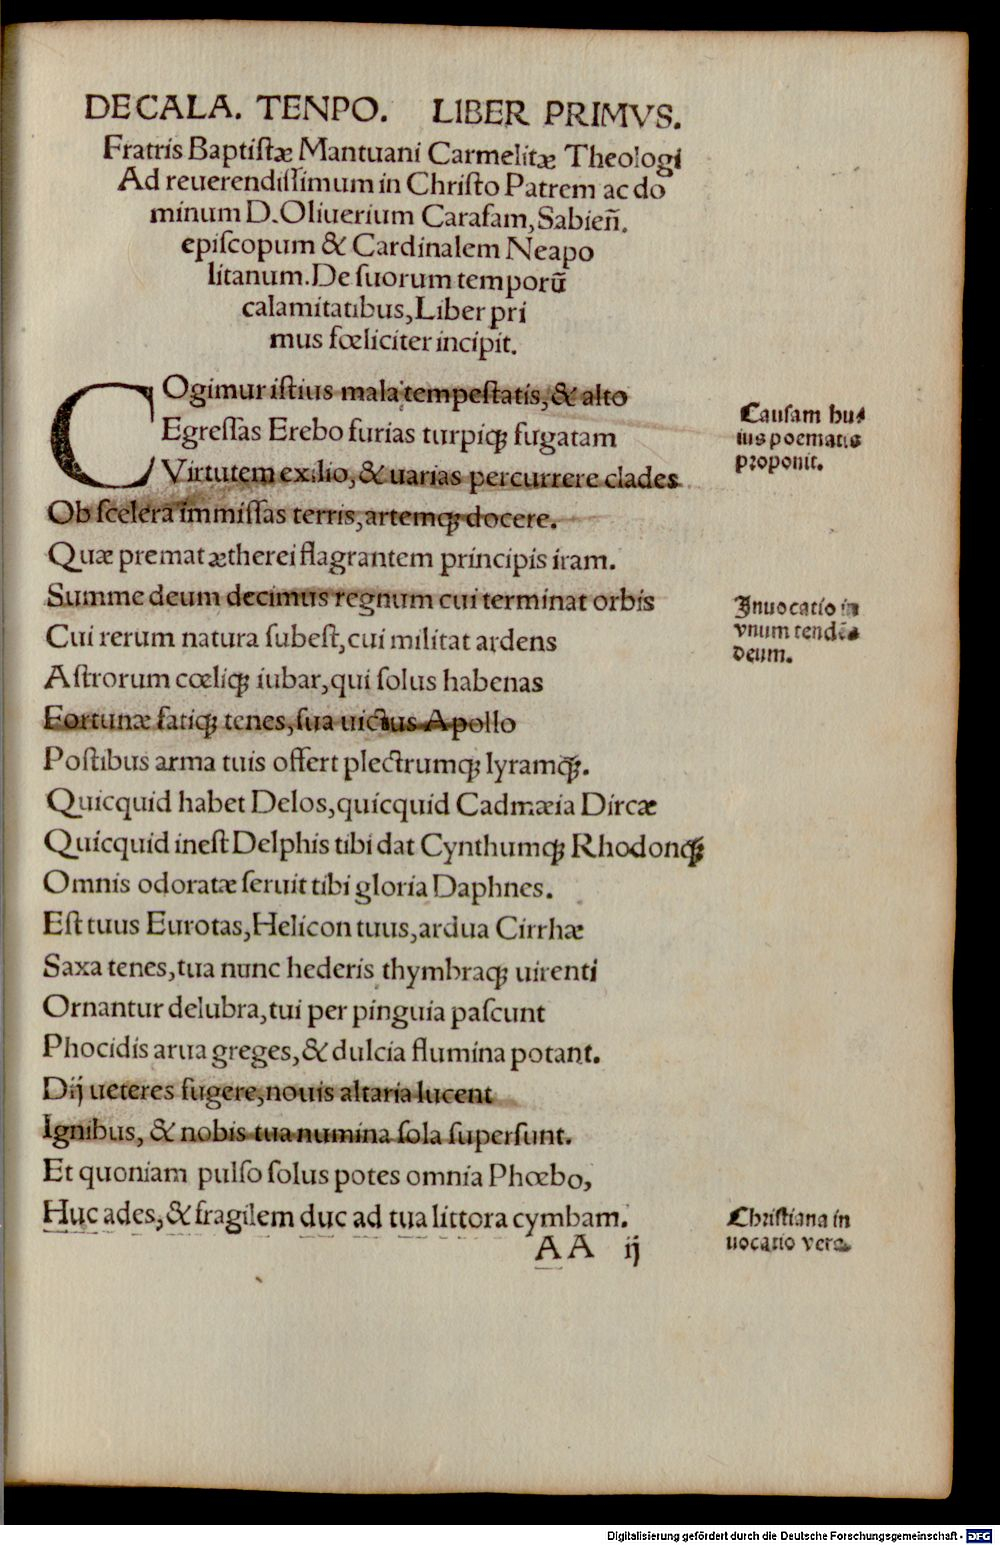 DE CALA. TENPO. LIBER PRIMVS.
Fratris Baptistæ Mantuani Carmelitæ Theologi
Ad reuerendissimum in Christo Patrem ac do
minum D. Oliuerium Carafam, Sabieñ.
episcopum & Cardinalem Neapo
litanum. De suorum temporū
calamitatibus, Liber pri
mus fœliciter incipit.
COgimur istius mala tempestatis, & alto
Egressas Erebo furias turpiqȝ fugatam
Virtutem exilio, & uarias percurrere clades
Ob scelera immissas terris, artemqȝ docere.
Quæ premat ætherei flagrantem principis iram.
Causam hu⸗
ius poematis
proponit.
Summe deum decimus regnum cui terminat orbis
Cui rerum natura subest, cui militat ardens
Astrorum cœliqȝ iubar, qui solus habenas
Fortunæ fatiqȝ tenes, sua uictus Apollo
Postibus arma tuis offert plectrumqȝ lyramqȝ.
Quicquid habet Delos, quicquid Cadmæia Dircæ
Quicquid inest Delphis tibi dat Cynthumqȝ Rhodonqȝ
Omnis odoratæ seruit tibi gloria Daphnes.
Est tuus Eurotas, Helicon tuus, ardua Cirrhæ
Saxa tenes, tua nunc hederis thymbraqȝ uirenti
Ornantur delubra, tui per pinguia pascunt
Phocidis arua greges, & dulcia flumina potant.
Dij ueteres fugere, nouis altaria lucent
Ignibus, & nobis tua numina sola supersunt.
Et quoniam pulso solus potes omnia Phœbo,
Huc ades, & fragilem duc ad tua littora cymbam.
Inuocatio in
vnum tendēs
deum.
Christiana in
uocatio vera.
AA ij
Digitalisierung gefördert durch die Deutsche Forschungsgemeinschaft - DFG